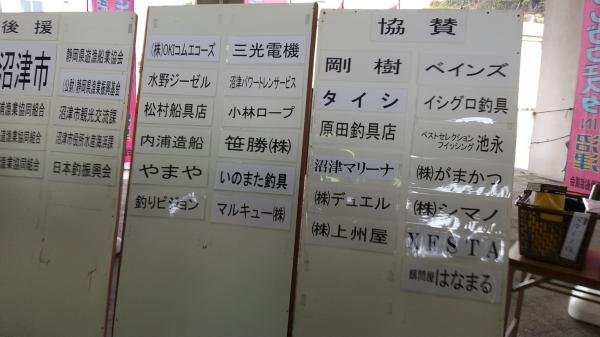 後援
沼津市
静岡県遊漁船業協会
(公財)静岡県漁業振興基金
沼津市観光交流課
沼津市役所水産海浜課
日本釣振興会
漁業協同組合
漁業協同組合
漁業協同組合
(株)OKIコムエコーズ
水野ジーゼル
松村船具店
内浦造船
やまや
釣りビジョン
三光電機
沼津パワートレンサービス
小林ロープ
笹勝(株)
いのまた釣具
マルキュー(株)
協賛
剛樹
タイシ
原田釣具店
沼津マリーナ
(株)デュエル
(株)上州屋
ベインズ
イシグロ釣具
ベストセレクション
フィッシング 池永
(株)がまかつ
(株)シマノ
NESTA
鶴問屋はなまる
IN
沼津